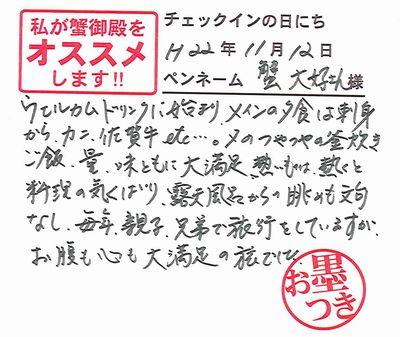 私が蟹御殿を
オススメ
します!!
チェックインの日にち
H22年11月12日
ペンネーム 蟹大好きさん様
ウェルカムドリンクに始まり、メインの夕食は刺身
から、カニ、佐賀牛etc…。〆のつやつやの釜炊き
ご飯。量、味ともに大満足。熱いものは、熱くと
料理の気くばり、露天風呂からの眺めも文句
なし。毎年、親子、兄弟で旅行をしていますが、
お腹も心も大満足の旅でした。
お墨つき